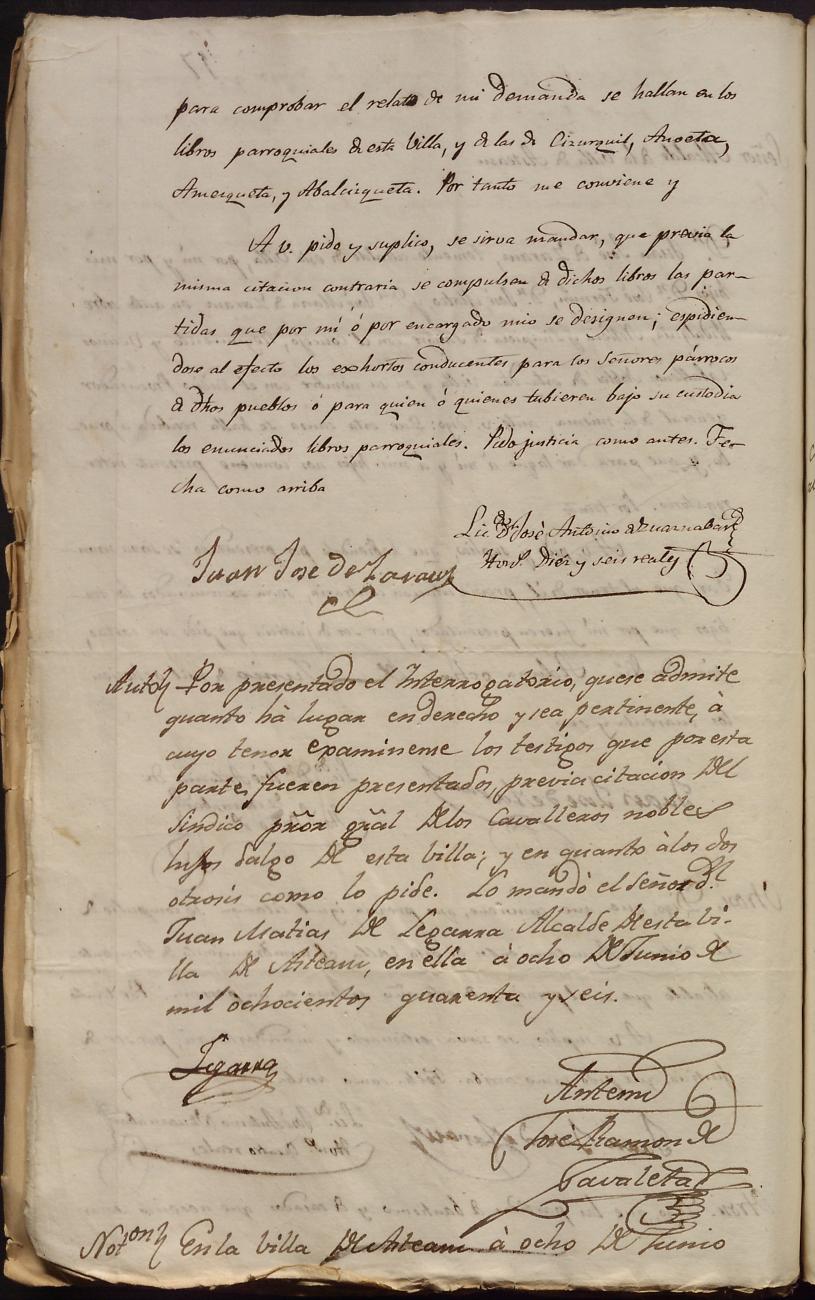 para comprobar el relato de mi demanda se hallan en los
libros parroquiales de esta Villa, y de las de Cizurquil, Anoeta,
Amezqueta, y Abalcizqueta. Por tanto me conviene y
A v. pido y suplico, se sirva mandar, que previa la
misma citacion contraria se compulsen de dichos libros las par-
tidas que por mi ó por encargado mio se designen; espidien-
dose al efecto los exhortos conducentes para los Señores párrocos
de dhos pueblos ó para quien ó quienes tubieren bajo su custodia
los enunciados libros parroquiales. Pido justicia como antes. Fe-
cha como arriba
Lic. Dn. José Antonio de
Hon.s Diez y seis reales
Juan Jose de Zarauz
Auto Por presentado el Interrogatorio, que se admite
quanto hà lugar en derecho y sea pertinente, à
cuyo tenor examinense los testigos que por esta
parte, fueren presentados, previa citacion del
Sindico prõr gñal de los Cavalleros nobles
hijos dalgo de esta villa; y en quanto à los dos
otrosis como lo pide. Lo mandò el Señor Dn.
Juan Matias de Legarra Alcalde de esta vi-
lla de Asteasu, en ella à ocho de Junio de
mil ochocientos quarenta y seis.
Legarra
Antemi
José Ramon de
Zavaleta
Noton En la villa de Asteasu à ocho de Junio